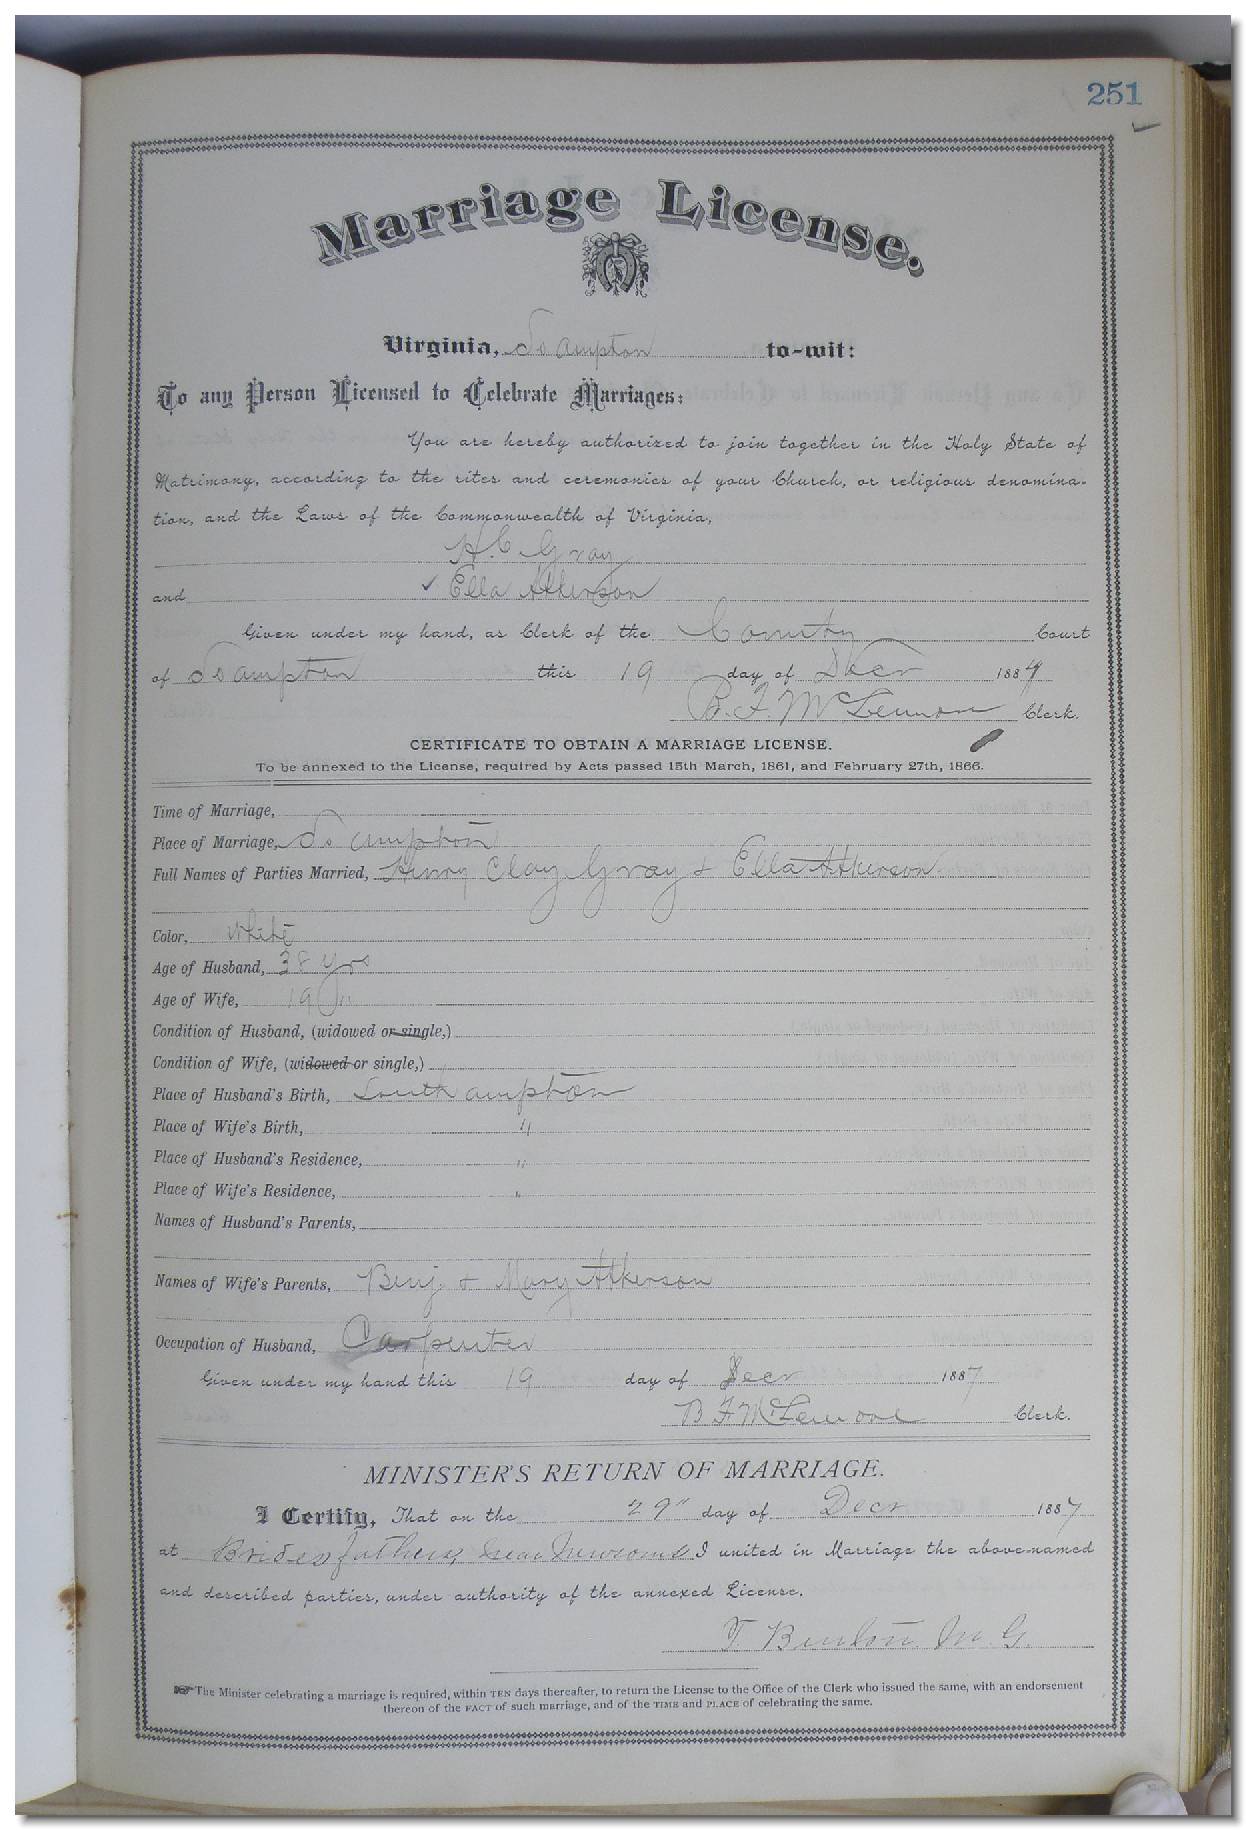 251
Marriage License.
Virginia, So ampton to-wit:
To any Person Licensed to Celebrate Marriages:
You are hereby authorized to join together in the Holy State of
Matrimony, according to the rites and ceremonies of your Church, or religious denomina-
tion, and the Laws of the Commonwealth of Virginia,
H. C Gray
and ✓ Ella Atkerson
Given under my hand, as Clerk of the County Court
of So ampton this 19 day of Decr 1887
B. F. McLemore Clerk.
CERTIFICATE TO OBTAIN A MARRIAGE LICENSE.
To be annexed to the License, required by Acts passed 15th March, 1861, and February 27th, 1866.
Time of Marriage,
Place of Marriage, So ampton
Full Names of Parties Married, Henry Clay Gray & Ella Atkerson
Color, White
Age of Husband, 38 yrs
Age of Wife, 19 "
Condition of Husband, (widowed or single,)
Condition of Wife, (widowed or single,)
Place of Husband's Birth, Southampton
Place of Wife's Birth, "
Place of Husband's Residence, "
Place of Wife's Residence, "
Names of Husband's Parents,
Names of Wife's Parents, Benj & Mary Atkerson
Occupation of Husband, Carpenter
Given under my hand this 19 day of Decr 1887
B F McLemore Clerk.
MINISTER'S RETURN OF MARRIAGE.
I Certify, That on the 29" day of Decr 1887
at Brides fathers near Newsoms I united in Marriage the above-named
and described parties, under authority of the annexed License.
T Benton M. G.
☞ The Minister celebrating a marriage is required, within TEN days thereafter, to return the License to the Office of the Clerk who issued the same, with an endorsement
thereon of the FACT of such marriage, and of the TIME and PLACE of celebrating the same.